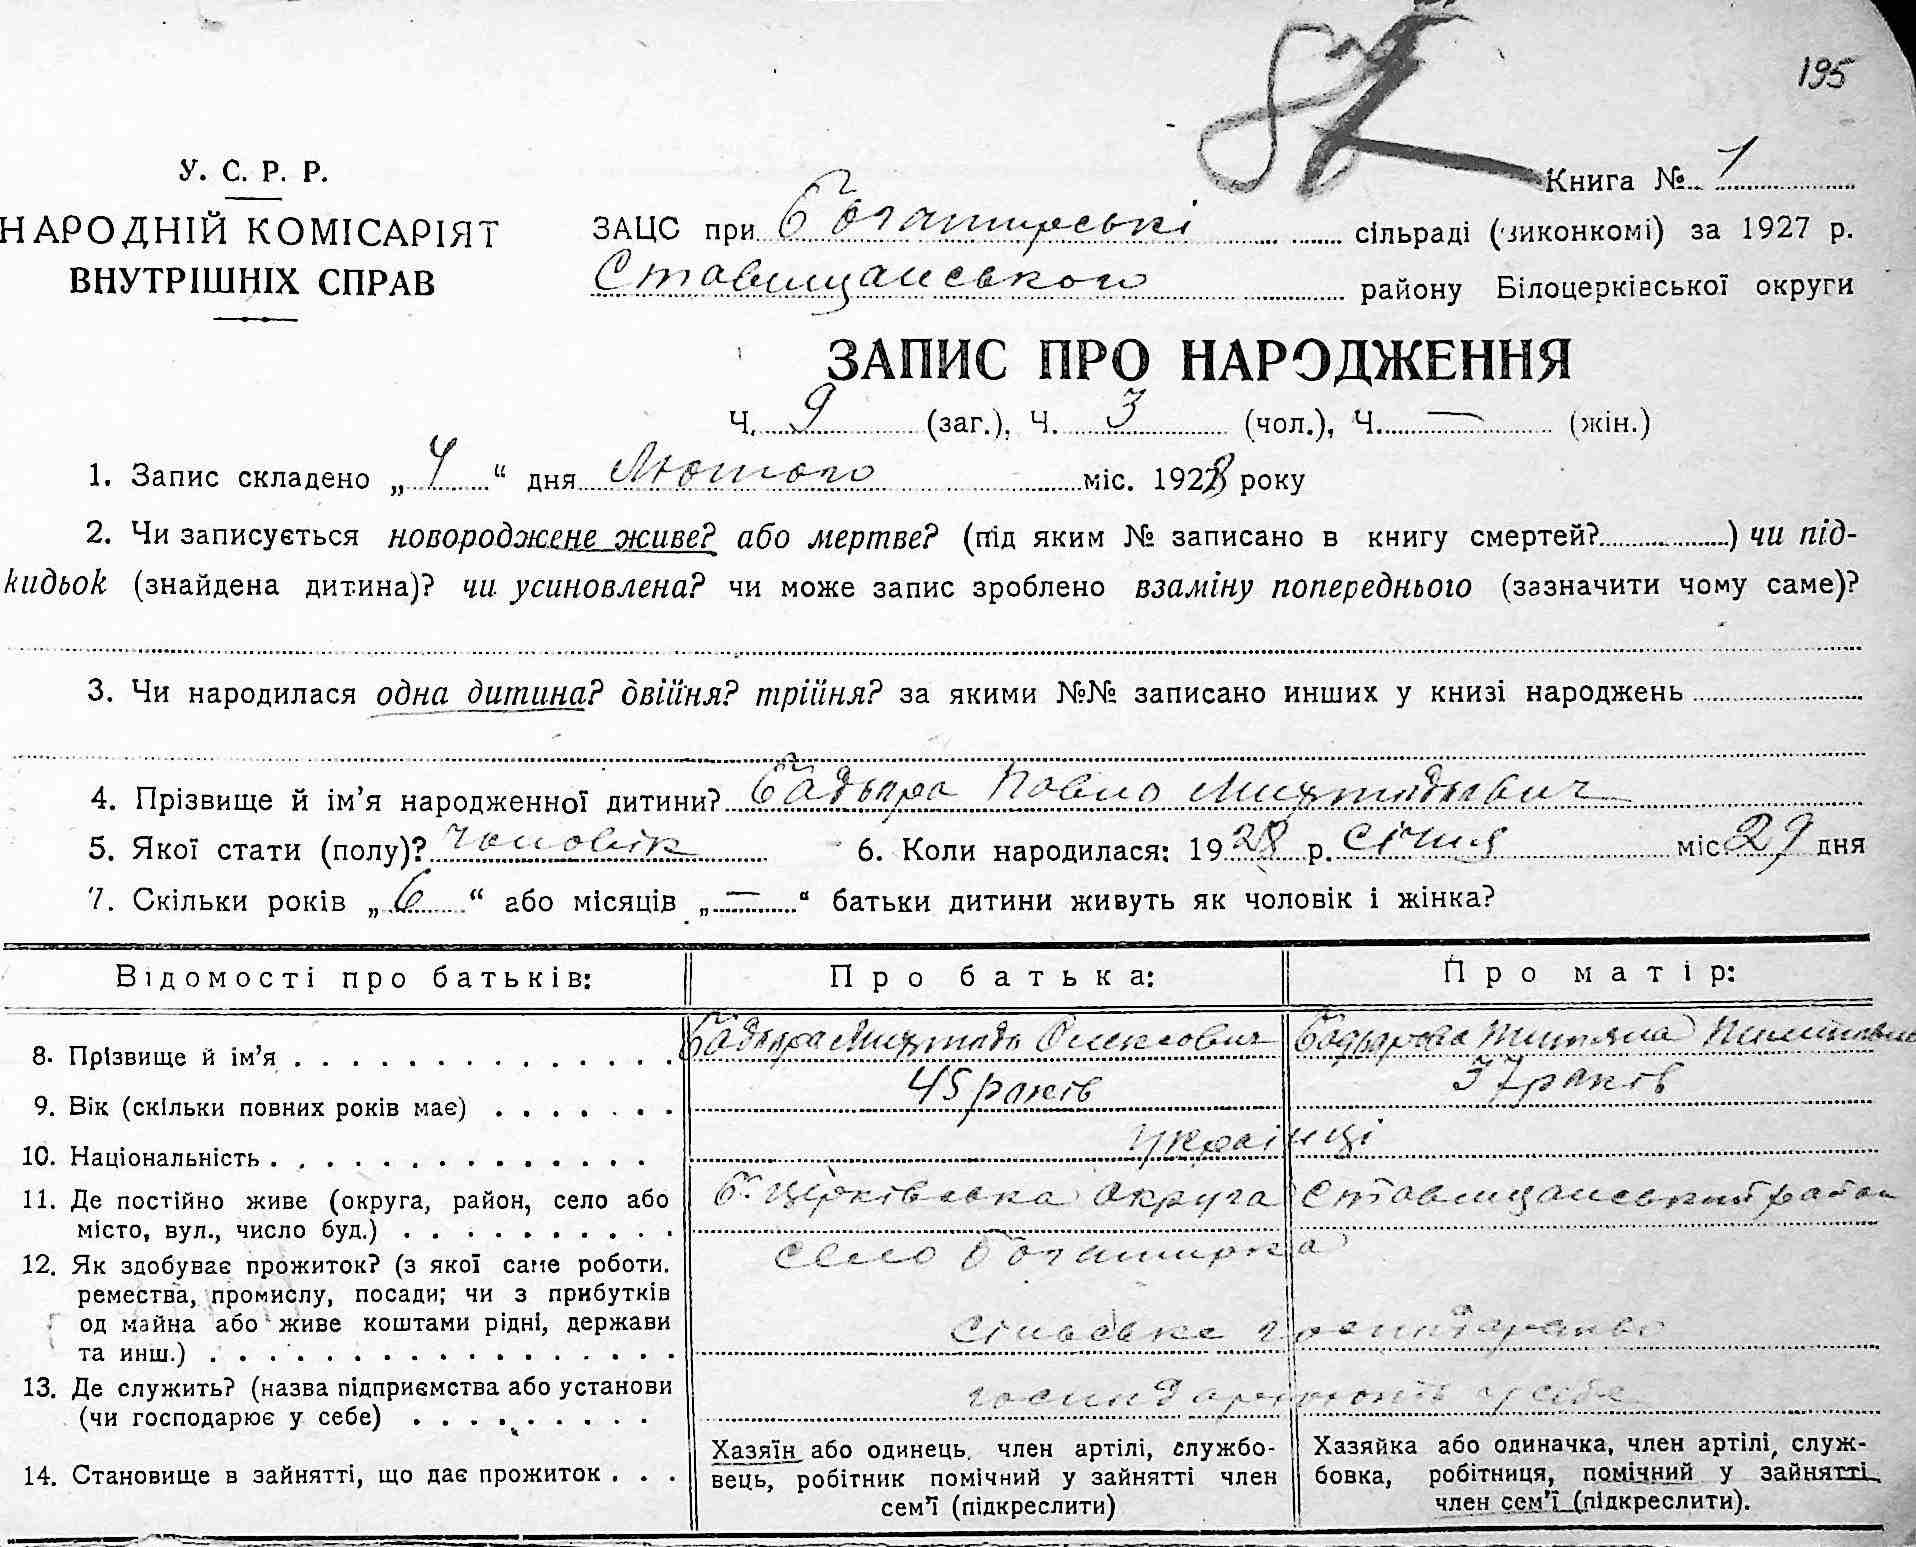 195
У. С. Р. Р.
НАРОДНІЙ КОМІСАРІЯТ
ВНУТРІШНІХ СПРАВ
Книга № 1
ЗАЦС при Богатирські сільраді (виконкомі) за 1927 р.
Ставищанського району Білоцерківської округи
ЗАПИС ПРО НАРОДЖЕННЯ
Ч. 9 (заг.), Ч. 3 (чол.), Ч. — (жін.)
1. Запис складено „ 4 “ дня Лютого міс. 1928 року
2. Чи записується новороджене живе? або мертве? (під яким № записано в книгу смертей? ) чи під-
кидьок (знайдена дитина)? чи усиновлена? чи може запис зроблено взаміну попереднього (зазначити чому саме)?
3. Чи народилася одна дитина? двійня? трійня? за якими №№ записано инших у книзі народжень
4. Прізвище й ім’я народженної дитини? Бадьора Павло
5. Якої стати (полу)? Чоловік 6. Коли народилася: 1928 р. Січня міс. 29 дня
7. Скільки років „ 6 “ або місяців „ — “ батьки дитини живуть як чоловік і жінка?
Відомості про батьків: Про батька: Про матір:
8. Прізвище й ім’я Олексович
9. Вік (скільки повних років має) 45 років 37 років
10. Національність Українці
11. Де постійно живе (округа, район, село або місто, вул., число буд.) Б. Церківська округа Ставищанський район
село Богатирка
12. Як здобуває прожиток? (з якої саме роботи.
ремества, промислу, посади; чи з прибутків
од майна або живе коштами рідні, держави
та инш.) Сільське господарство
13. Де служить? (назва підприємства або установи
(чи господарює у себе) господарюють у себе
14. Становище в зайнятті, що дає прожиток
Хазяїн або одинець, член артілі, службо-
вець, робітник помічний у зайнятті член
сем’ї (підкреслити)
Хазяйка або одиначка, член артілі, служ-
бовка, робітниця, помічний у зайнятті
член сем’ї (підкреслити).